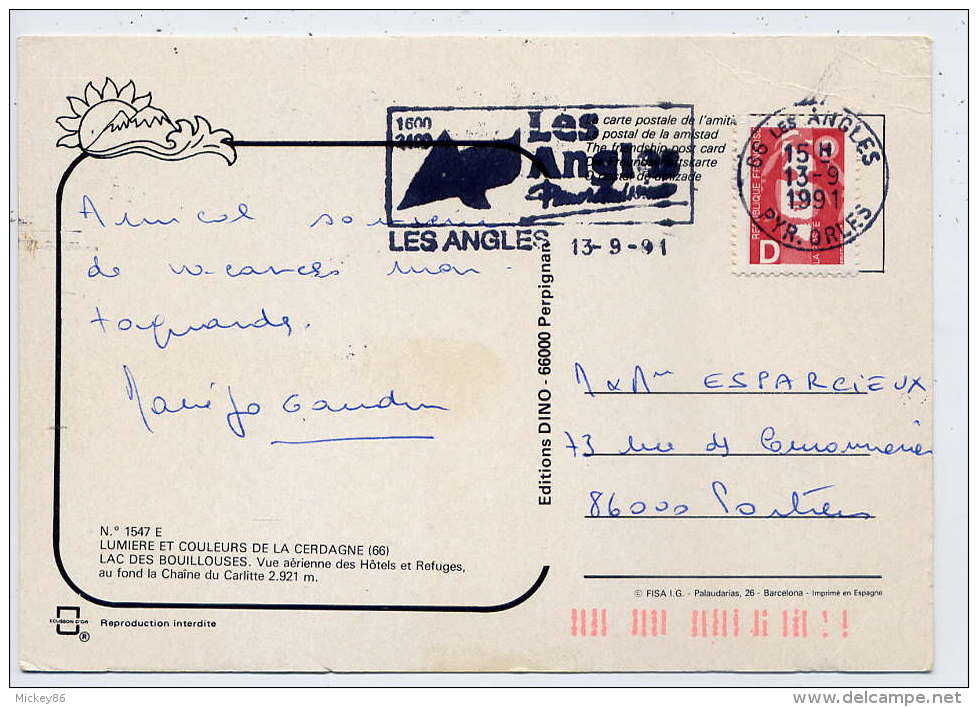 1600
2400
Les
Angles
Pyrénéennes
LES ANGLES
13-9-91
carte postale de l'amiti
postal de la amistad
The friendship post card
66 LES ANGLES
15 H
13-9
1991
PYR. ORLES
REPUBLIQUE FR
LA
D
Amical souvenir
de vacances mon-
tagnardes.
Marie Jo Gaudin
Editions DINO - 66000 Perpignan
M & Mme ESPARCIEUX
73 rue des Couronneries
86000 Poitiers
N.° 1547 E
LUMIERE ET COULEURS DE LA CERDAGNE (66)
LAC DES BOUILLOUSES. Vue aérienne des Hôtels et Refuges,
au fond la Chaîne du Carlitte 2.921 m.
© FISA I.G. - Palaudarias, 26 - Barcelona - Imprimé en Espagne
ECUSSON D'OR
®
Reproduction interdite
Mickey86
www.delcampe.net